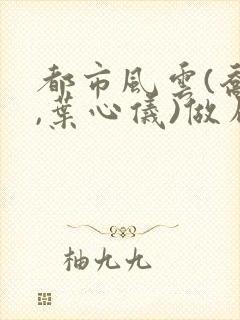 都市風雲(喬
,葉心儀)做
柚九九